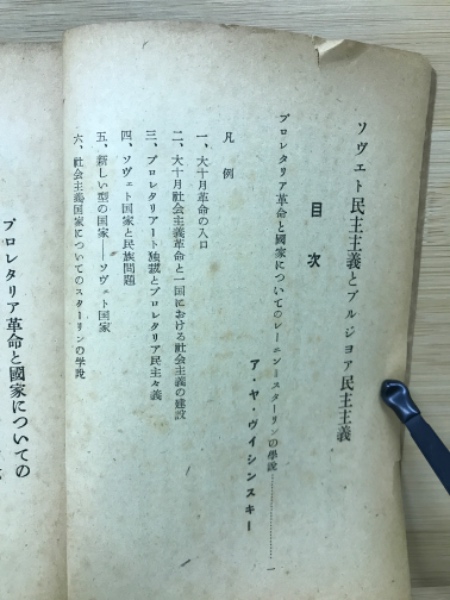 ソヴェト民主主義とブルジョア民主主義
目次
プロレタリア革命と國家についてのレーニン―スターリンの學說……………一
ア・ヤ・ヴイシンスキー
凡例
一、大十月革命の入口
二、大十月社会主義革命と一国における社会主義の建設
三、プロレタリアート独裁とプロレタリア民主々義
四、ソヴェト国家と民族問題
五、新しい型の国家――ソヴェト国家
六、社会主義国家についてのスターリンの學說
プロレタリア革命と國家についての